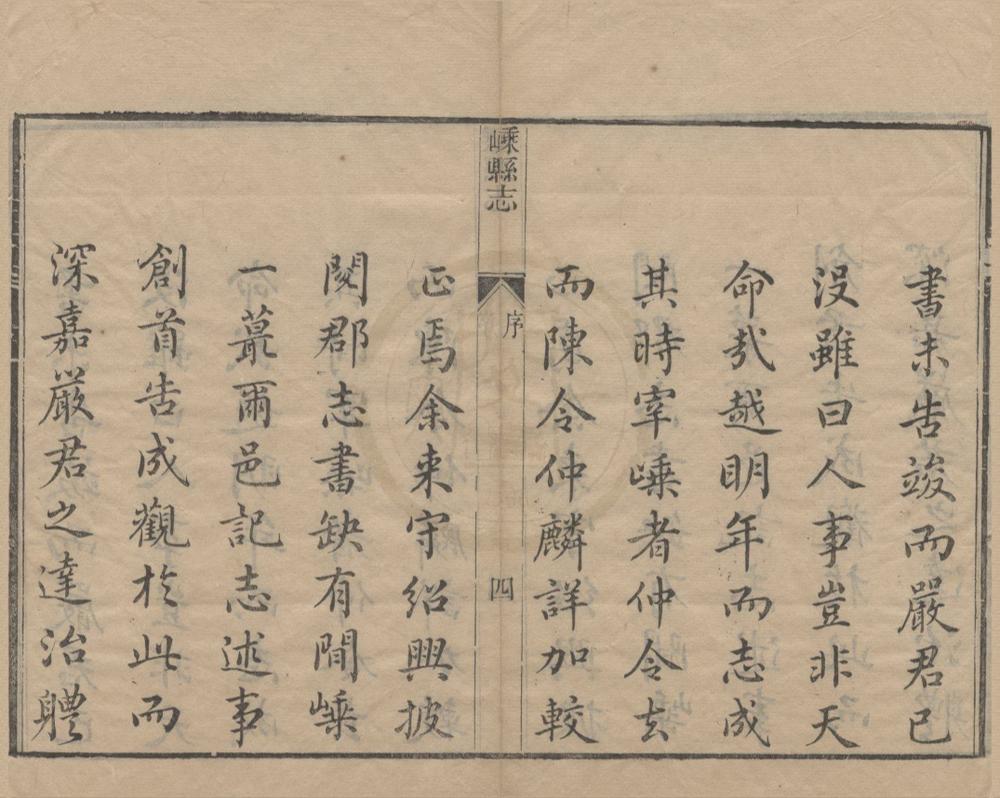 書未告竣而嚴君已
沒雖曰人事豈非天
命哉越明年而志成
其時宰嵊者仲令去
而陳令仲麟詳加較
嵊縣志
序
四
正焉余来守紹興披
閱郡志書缺有間嵊
一蕞爾邑記志述事
創首告成觀於此而
深嘉嚴君之達治體